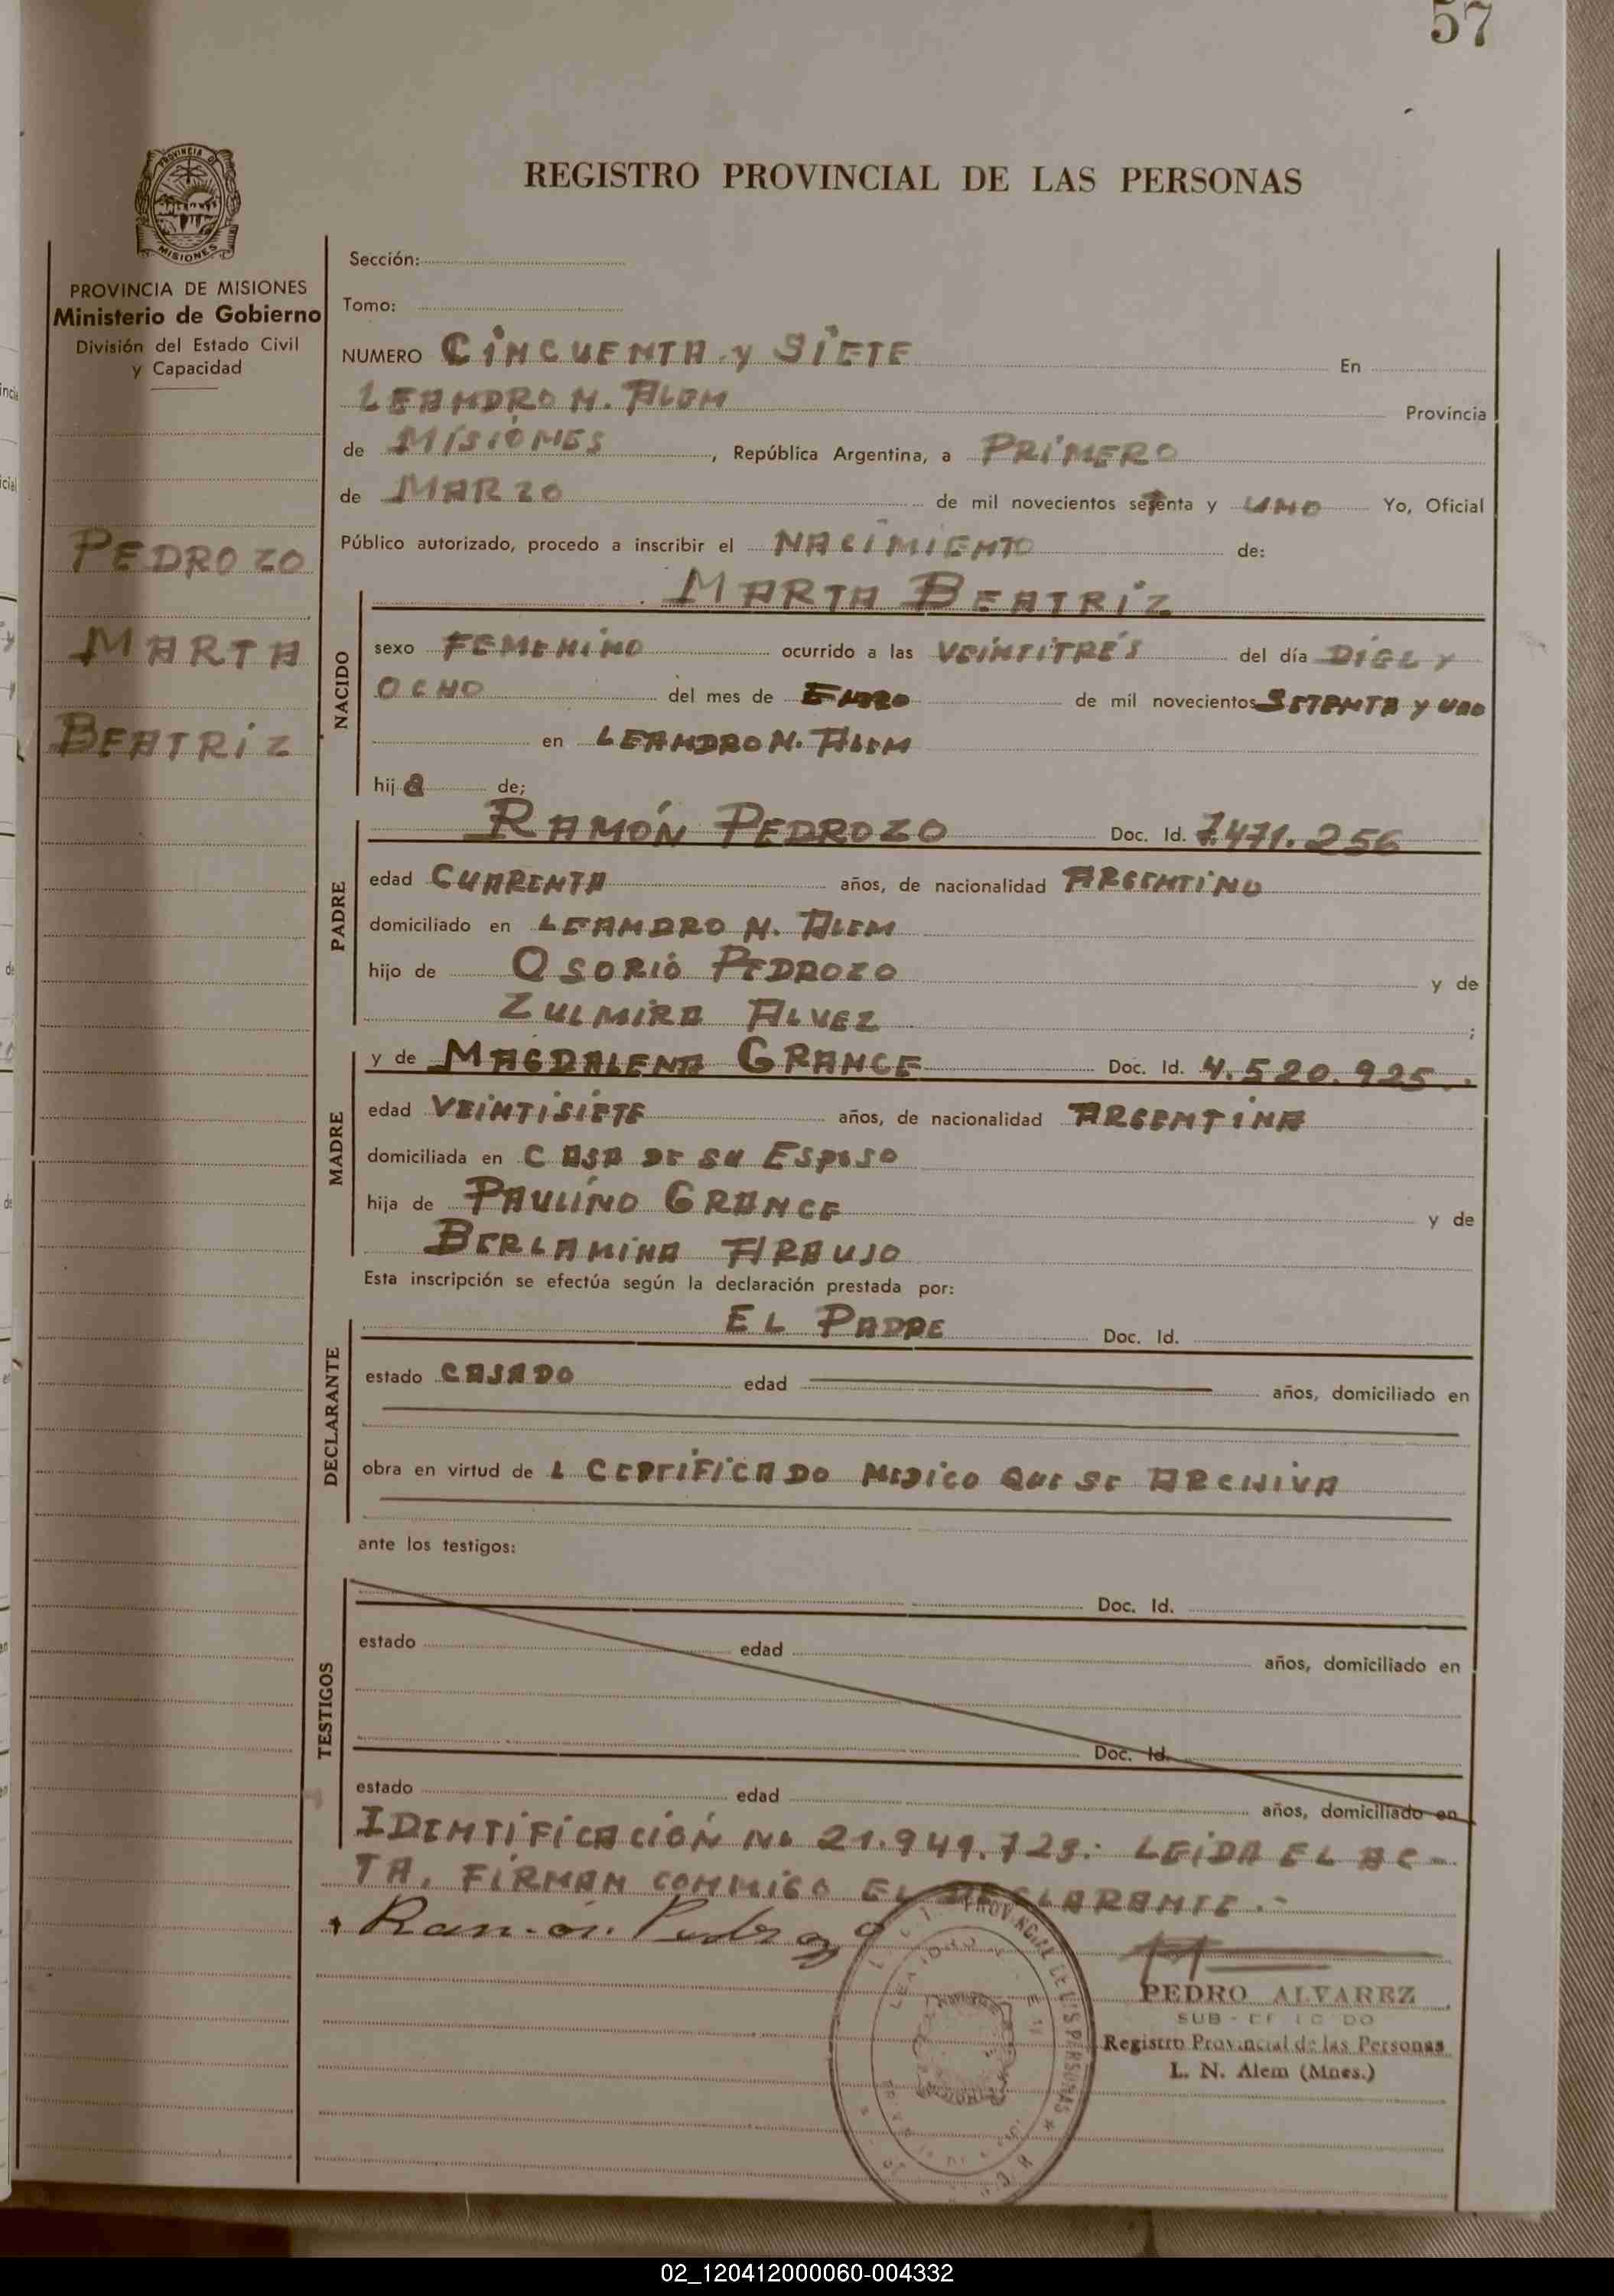 57
REGISTRO PROVINCIAL DE LAS PERSONAS
PROVINCIA DE MISIONES
Ministerio de Gobierno
División del Estado Civil
y Capacidad
PEDROZO
MARTA
BEATRIZ
Sección:
Tomo:
NUMERO CINCUENTA y SIETE En
LEANDRO N. ALEM Provincia
de MISIONES, República Argentina, a PRIMERO
de MARZO de mil novecientos setenta y UNO Yo, Oficial
Público autorizado, procedo a inscribir el NACIMIENTO de:
MARTA BEATRIZ
NACIDO
sexo FEMENINO ocurrido a las VEINTITRÉS del día DIEZ Y
OCHO del mes de ENERO de mil novecientos SETENTA Y UNO
en LEANDRO N. ALEM
hij a de;
RAMÓN PEDROZO Doc. Id. 7.471.256
PADRE
edad CUARENTA años, de nacionalidad ARGENTINO
domiciliado en LEANDRO N. ALEM
hijo de OSORIO PEDROZO y de
ZULMIRA ALVEZ ;
y de MAGDALENA GRANCE Doc. Id. 4.520.925.
MADRE
edad VEINTISIETE años, de nacionalidad ARGENTINA
domiciliada en CASA DE SU ESPOSO
hija de PAULINO GRANCE y de
BERLAMINA ARAUJO
Esta inscripción se efectúa según la declaración prestada por:
EL PADRE Doc. Id.
DECLARANTE
estado CASADO edad años, domiciliado en
obra en virtud de L CERTIFICADO MEDICO QUE SE ARCHIVA
ante los testigos:
TESTIGOS
Doc. Id.
estado edad años, domiciliado en
Doc. Id.
estado edad años, domiciliado en
IDENTIFICACIÓN No 21.949.723.- LEIDA EL AC-
TA, FIRMAN CONMIGO EL DECLARANTE.-
Ramón Pedrozo
PEDRO ALVAREZ
Registro Provincial de las Personas
L. N. Alem (Mnes.)
02_120412000060-004332